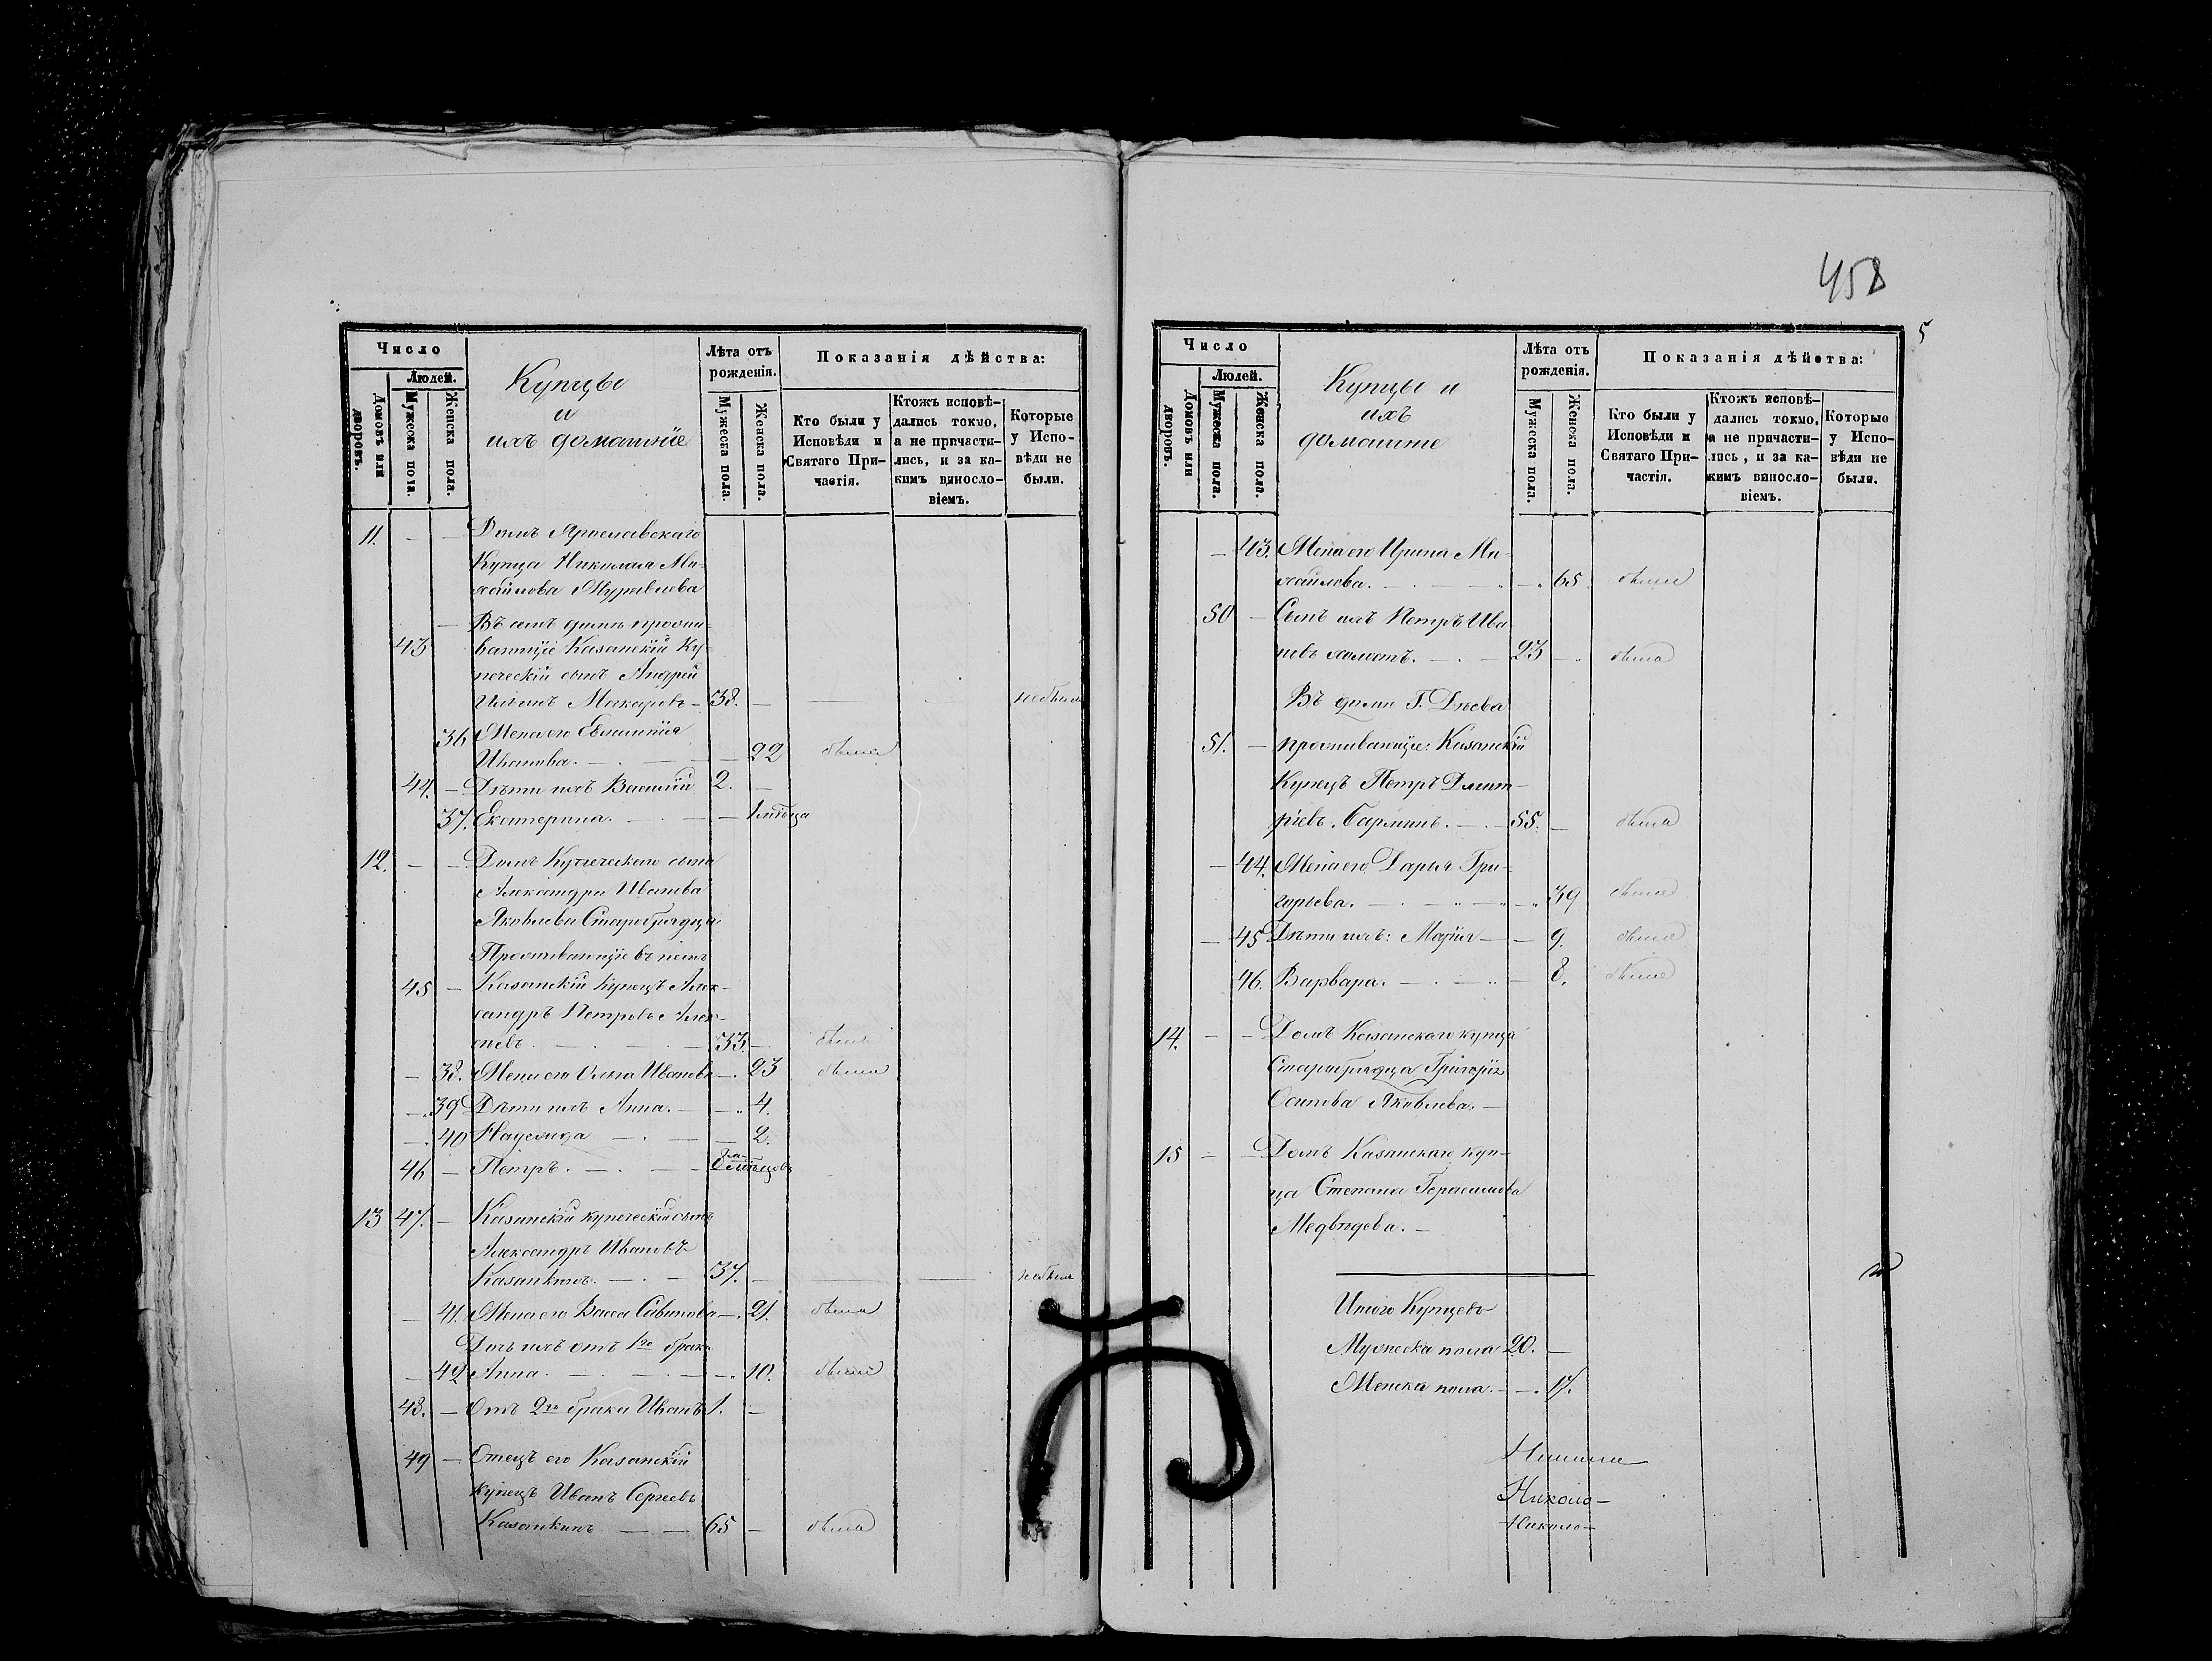 458
5
Число
Людей.
Домовъ или дворовъ.
Мужеска пола.
Женска пола.
Купцы
и
ихъ домашніе
Лѣта отъ рожденія.
Мужеска пола.
Женска пола.
Показанія дѣйства:
Кто были у Исповѣди и Святаго Причастія.
Ктожъ исповѣдались токмо, а не причастились, и за какимъ винословіемъ.
Которые у Исповѣди не были.
11. — — Домъ Ярославскаго
Купца Николая Ми-
хайлова Журавлева
— Въ семъ домѣ прожи-
43 вающіе Казанскій Ку-
печескій сынъ Андрей
Ильинъ Макаровъ — 38. — — — не былъ
36 Жена его Евлампія
Иванова. — . — — 22 была
44. — Дѣти ихъ Василій 2. —
37. Екатерина. — . — — 1 мѣсяца
12. — — Домъ Купеческаго сына
Александра Иванова
Яковлева Старообрядца
Проживающіе въ немъ
45 — Казанскій Купецъ Алек-
сандръ Петровъ Алек-
сѣевъ . — . — . — 33. — былъ
— 38. Жена его Ольга Иванова — . 23 была
— . 39 Дѣти ихъ Анна. — — „ 4.
— . 40 Надежда — . — — 2.
46 — Петръ. — . — — 8 мѣсяцевъ
13 47. — Казанскій купеческій сынъ
Александръ Ивановъ
Казанкинъ. — . — 37. — — — не былъ
— 41. Жена его Васса Савинова — . 21. была
Дочь ихъ отъ 1го брака
— 42 Анна. — . — . — — . 10. была
48. — Отъ 2го брака Иванъ 1. —
49 — Отецъ его Казанскій
купецъ Иванъ Сергѣевъ
Казанкинъ — — 65 — былъ
Число
Людей.
Домовъ или дворовъ.
Мужеска пола.
Женска пола.
Купцы и
ихъ
домашніе
Лѣта отъ рожденія.
Мужеска пола.
Женска пола.
Показанія дѣйства:
Кто были у Исповѣди и Святаго Причастія.
Ктожъ исповѣдались токмо, а не причастились, и за какимъ винословіемъ.
Которые у Исповѣди не были.
— 43. Жена его Ирина Ми-
хайлова. — . — — „ — „ 65 была
50 — Сынъ ихъ Петръ Ива-
новъ холостъ. — . — 23 — „ былъ
Въ домѣ Г. Дѣева
51. — проживающіе: Казанскій
Купецъ Петръ Дмит-
ріевъ Барминъ. — . — 55. — былъ
— 44. Жена его Дарья Гри-
горьева. — . — „ — „ — „ 39 была
— 45 Дѣти ихъ: Марія — — 9. была
46. Варвара. — . — „ — 8. была
14. — — Домъ Казанскаго купца
Старообрядца Григорія
Осипова Яковлева. —
15 — — Домъ Казанскаго Куп-
ца Степана Герасимова
Медвѣдева. —
Итого Купцовъ
Мужеска пола 20. —
Женска пола. — — . 17.
Николо—
Николо—